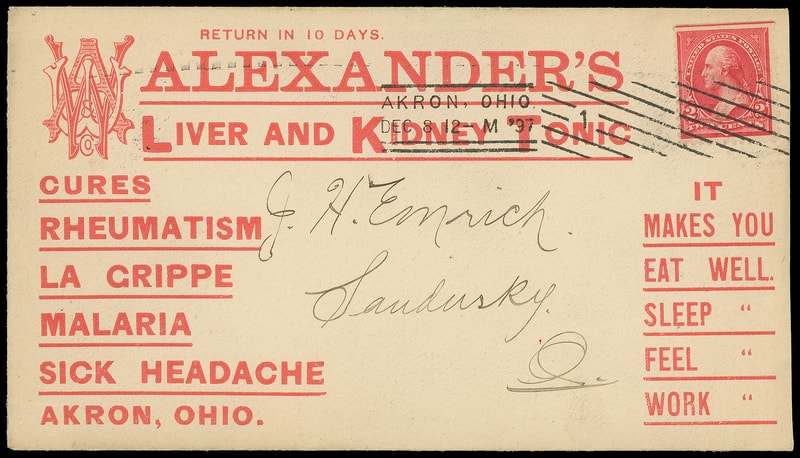 RETURN IN 10 DAYS.
ALEXANDER'S
LIVER AND KIDNEY TONIC
UNITED STATES POSTAGE
2 2
AKRON, OHIO.
DEC 8 12- M '97
1
CURES
RHEUMATISM
LA GRIPPE
MALARIA
SICK HEADACHE
AKRON, OHIO.
J. H. Emrich.
Sandusky.
O.
IT
MAKES YOU
EAT WELL.
SLEEP "
FEEL "
WORK "